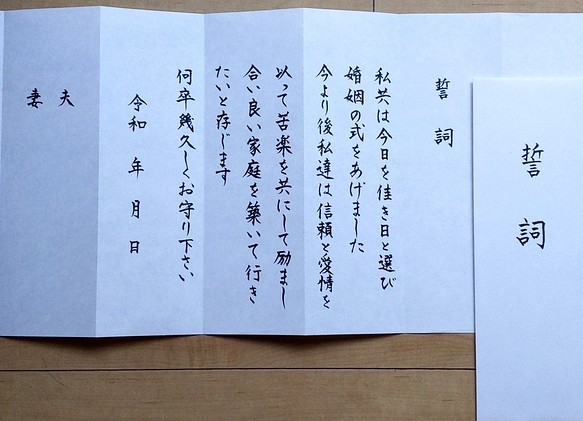 誓詞
誓詞
私共は今日を佳き日と選び
婚姻の式をあげました
今より後私達は信頼と愛情を
以って苦楽を共にして励まし
合い良い家庭を築いて行き
たいと存じます
何卒幾久しくお守り下さい
令和 年 月 日
夫
妻